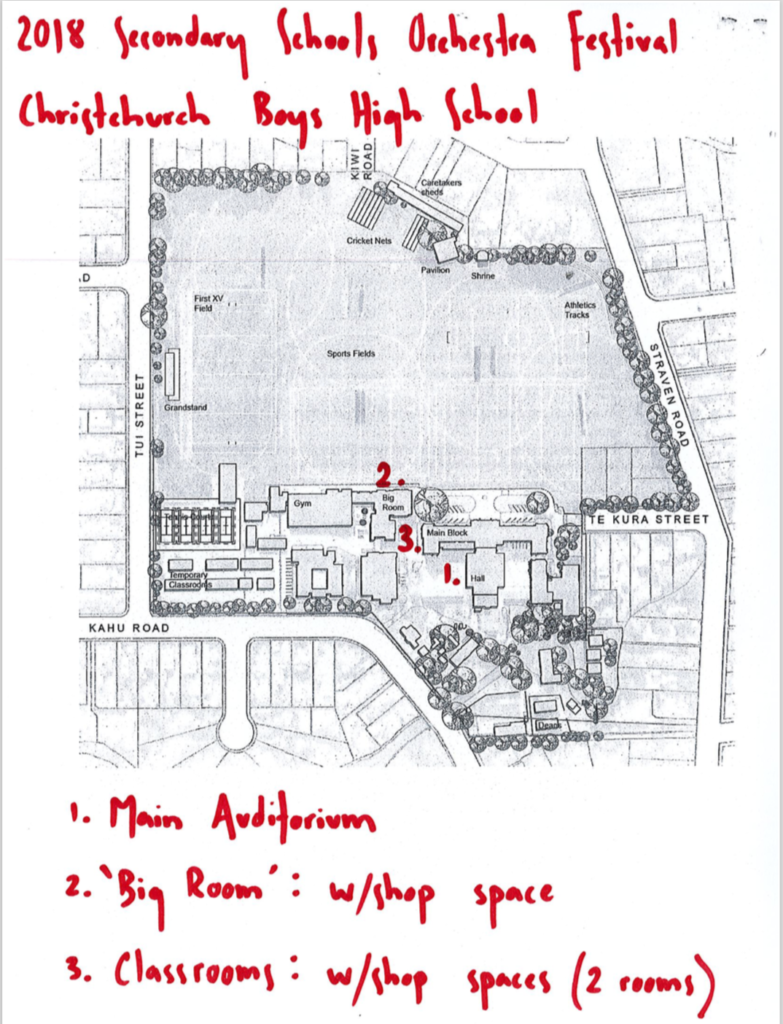 2018 Secondary Schools Orchestra Festival
Christchurch Boys High School
KIWI
ROAD
Caretakers
sheds
Cricket Nets
Pavilion
Shrine
D
First XV
Field
Athletics
Tracks
Sports Fields
STRAVEN ROAD
TUI STREET
Grandstand
2.
Gym
Big
Room
TE KURA STREET
3.
Main Block
1.
Hall
Temporary
Classrooms
KAHU ROAD
1. Main Auditorium
2. 'Big Room' : w/shop space
3. Classrooms : w/shop spaces (2 rooms)